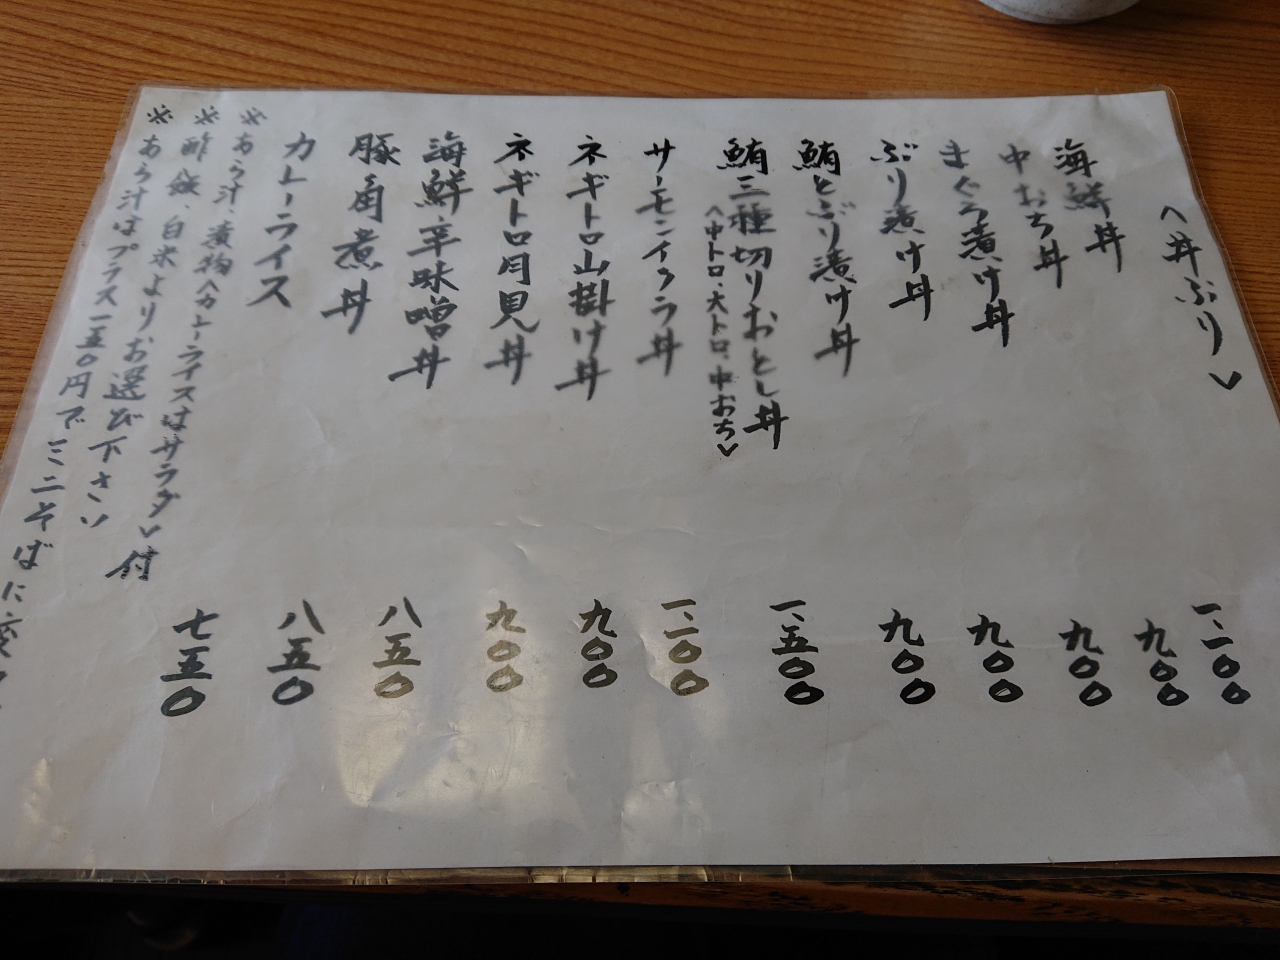 〈丼ぶり〉
海鮮丼 一、一〇〇
中おち丼 九〇〇
まぐろ漬け丼 九〇〇
ぶり漬け丼 九〇〇
鮪とぶり漬け丼 九〇〇
鮪三種切りおとし丼 一、五〇〇
〈中トロ、大トロ、中おち〉
サーモンイクラ丼 一、一〇〇
ネギトロ山掛け丼 九〇〇
ネギトロ月見丼 九〇〇
海鮮辛味噌丼 八五〇
豚角煮丼 八五〇
カレーライス 七五〇
※あら汁、漬物〈カレーライスはサラダ〉付
※酢飯、白米よりお選び下さい
※あら汁はプラス一五〇円でミニそばに変